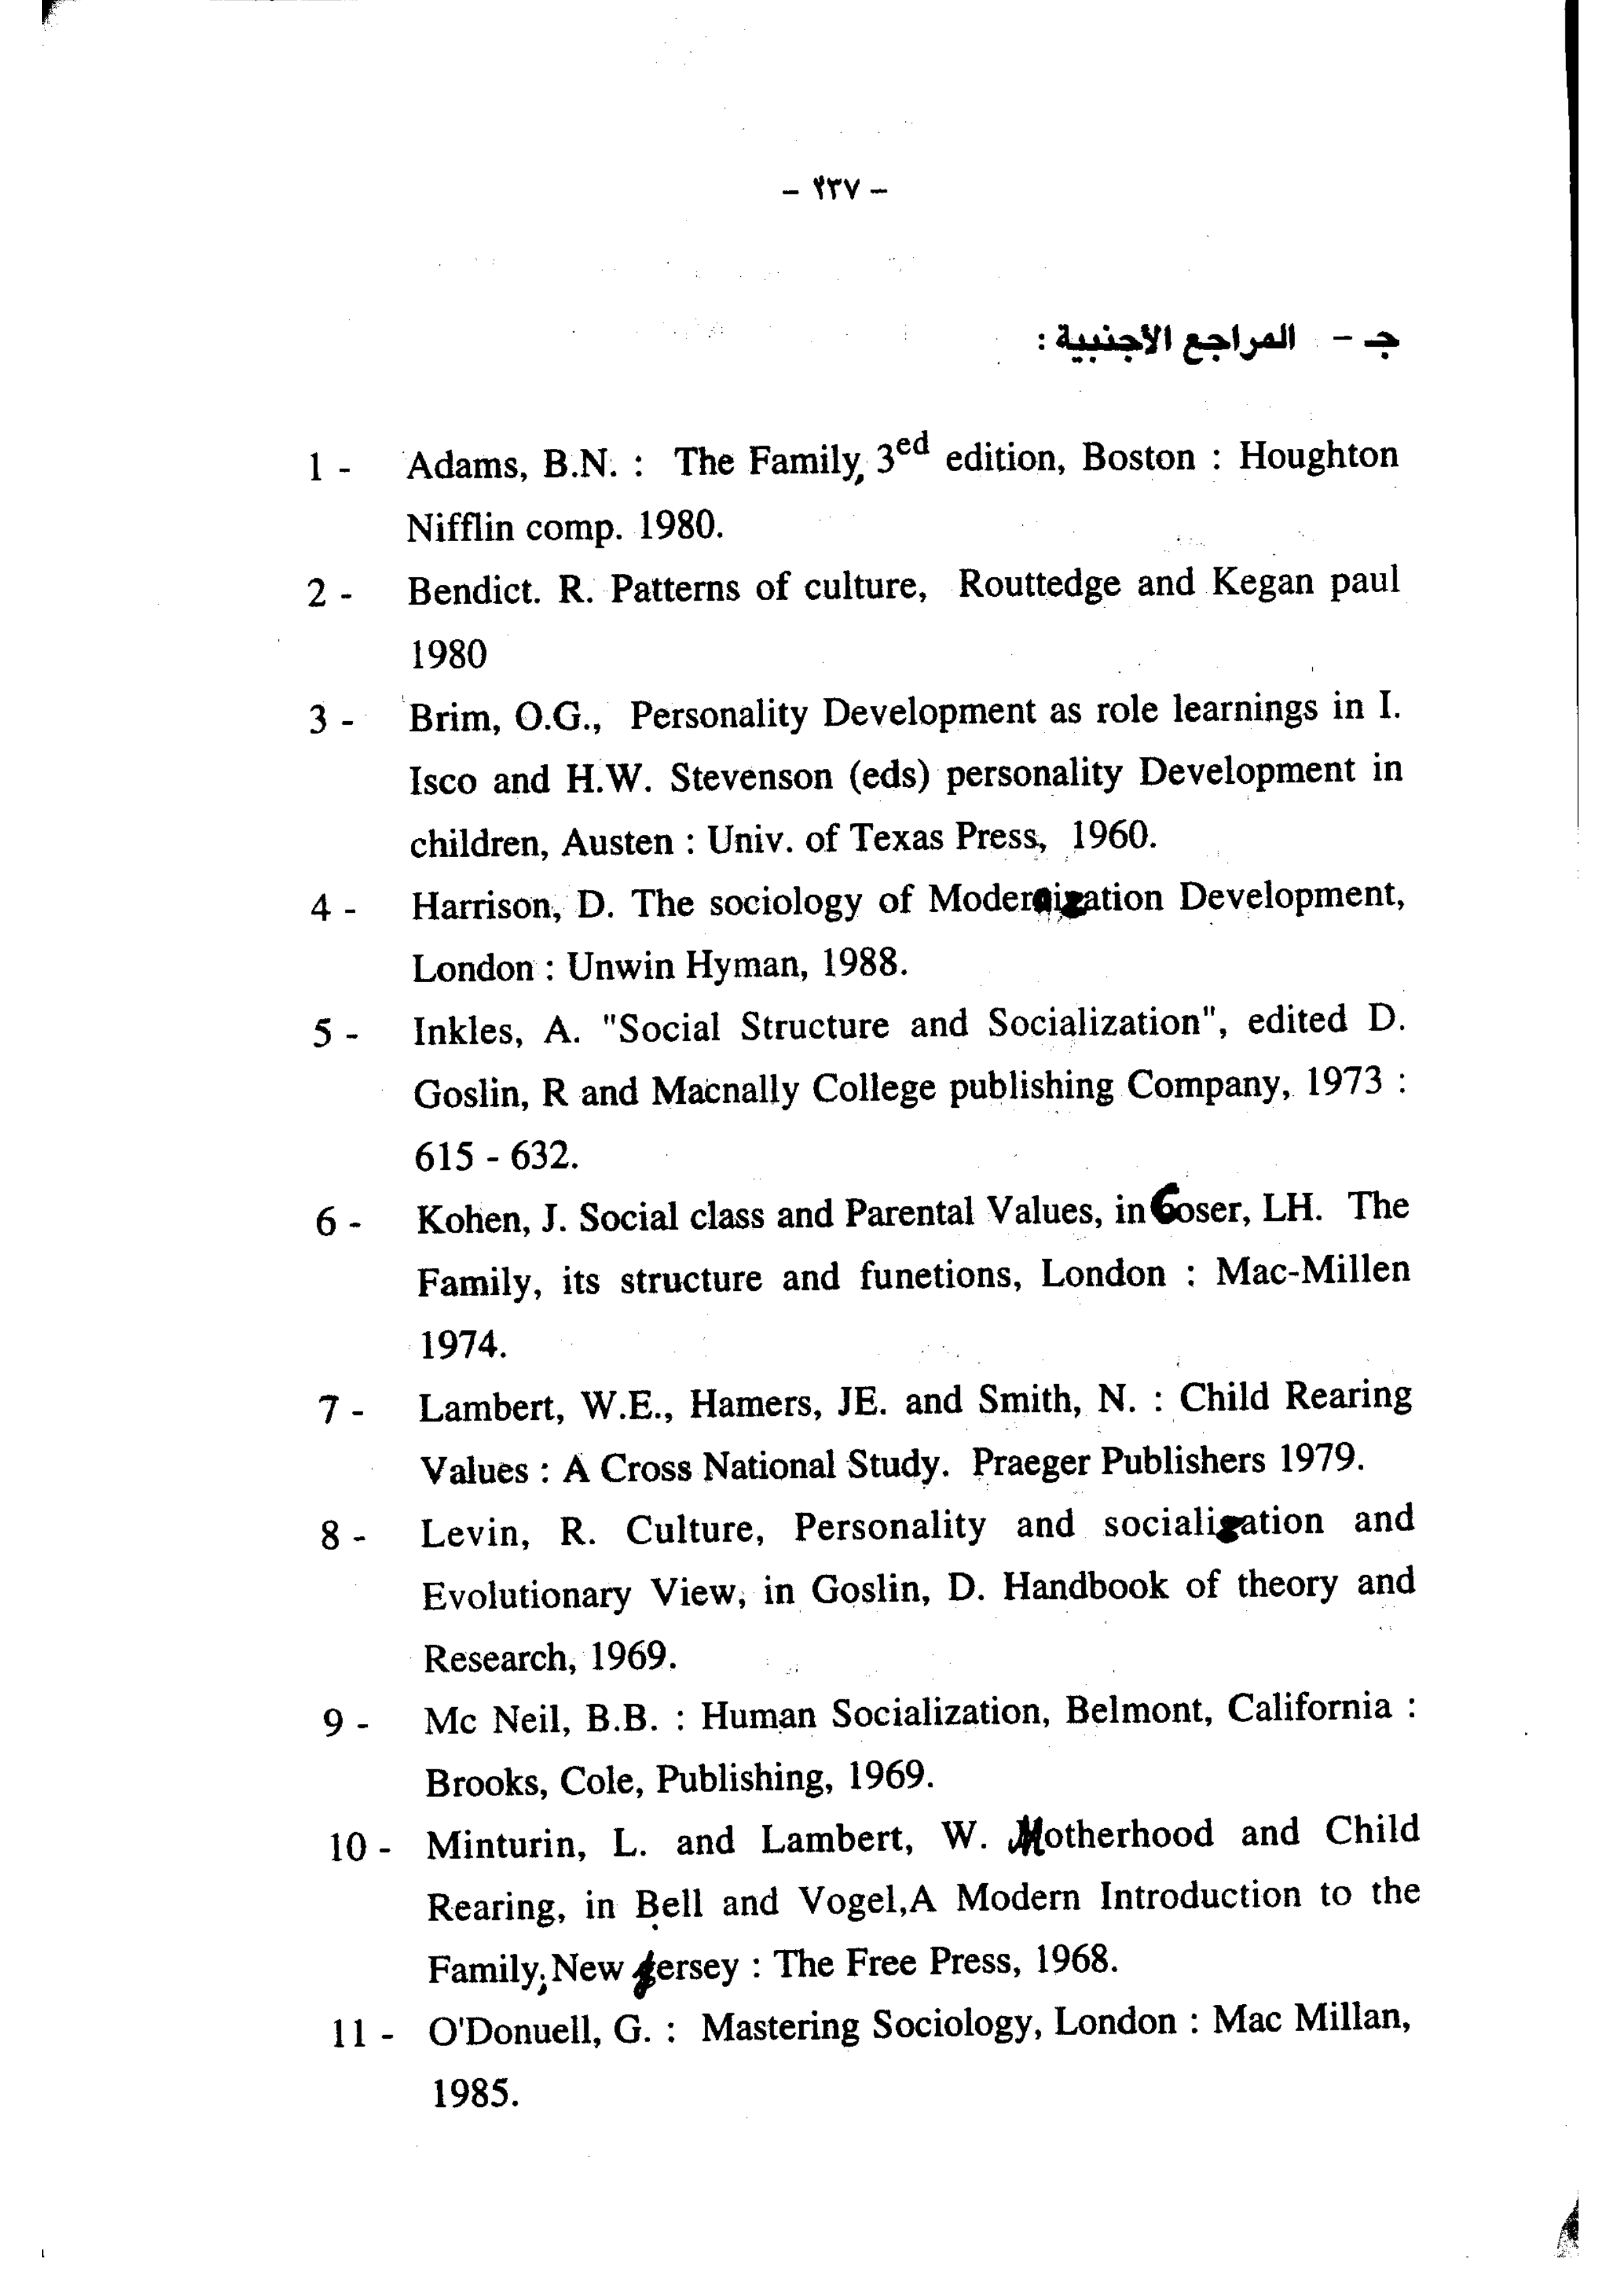 - ٢٣٧ -
جـ - المراجع الأجنبية :
1 - Adams, B.N. : The Family, 3ed edition, Boston : Houghton
Nifflin comp. 1980.
2 - Bendict. R. Patterns of culture, Routtedge and Kegan paul
1980
3 - Brim, O.G., Personality Development as role learnings in I.
Isco and H.W. Stevenson (eds) personality Development in
children, Austen : Univ. of Texas Press, 1960.
4 - Harrison, D. The sociology of Modernization Development,
London : Unwin Hyman, 1988.
5 - Inkles, A. "Social Structure and Socialization", edited D.
Goslin, R and Macnally College publishing Company, 1973 :
615 - 632.
6 - Kohen, J. Social class and Parental Values, in Coser, LH. The
Family, its structure and funetions, London : Mac-Millen
1974.
7 - Lambert, W.E., Hamers, JE. and Smith, N. : Child Rearing
Values : A Cross National Study. Praeger Publishers 1979.
8 - Levin, R. Culture, Personality and socialization and
Evolutionary View, in Goslin, D. Handbook of theory and
Research, 1969.
9 - Mc Neil, B.B. : Human Socialization, Belmont, California :
Brooks, Cole, Publishing, 1969.
10 - Minturin, L. and Lambert, W. Motherhood and Child
Rearing, in Bell and Vogel,A Modern Introduction to the
Family, New Jersey : The Free Press, 1968.
11 - O'Donuell, G. : Mastering Sociology, London : Mac Millan,
1985.